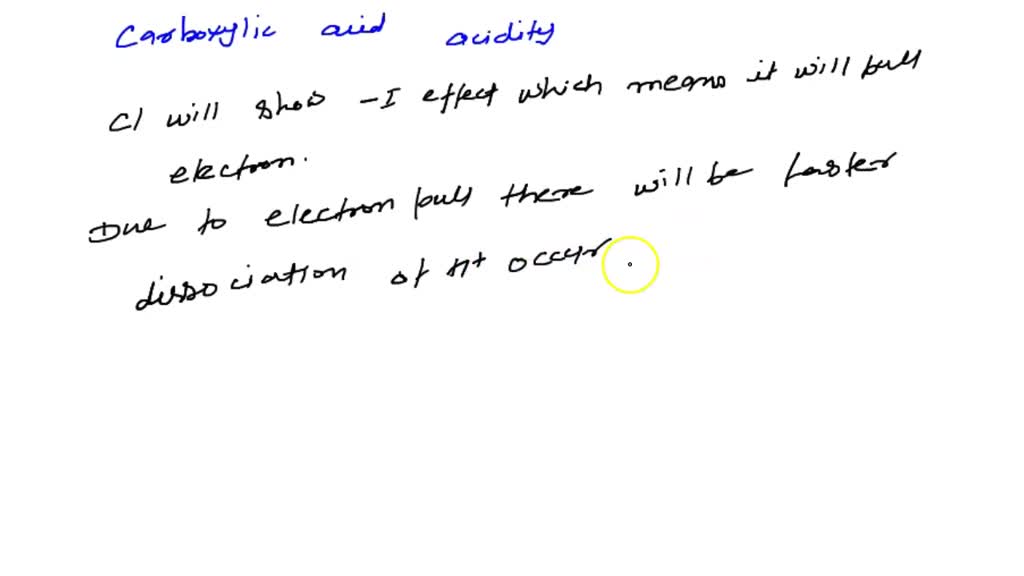 Carboxylic acid acidity
Cl will show -I effect which means it will pull
electron.
Due to electron pull there will be faster
dissociation of H+ occur